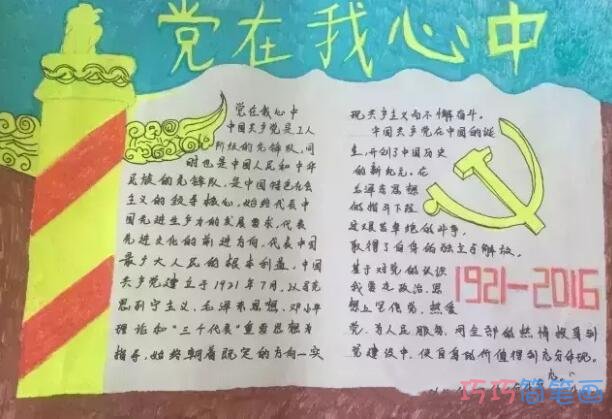 党在我心中
党在我心中
中国共产党是工人
阶级的先锋队，同
时也是中国人民和中华
民族的先锋队，是中国特色社会
主义的领导核心，始终代表中
国先进生产力的发展要求，代表
先进文化的前进方向，代表中国
最广大人民的根本利益。中国
共产党建立于1921年7月，以马克
思列宁主义、毛泽东思想、邓小平
理论和"三个代表"重要思想为
指导，始终朝着既定的方向—实
现共产主义而不懈奋斗。
中国共产党在中国的诞
生，开创了中国历史
的新纪元，在
毛泽东思想
的指导下经
过艰苦卓绝的斗争，
取得了自身的独立与解放，
基于对党的认识
我要在政治、思
想上坚信党，热爱
党，为人民服务，用全部的热情投身到
党建设中，使自身的价值得到充分体现。
1921—2016
巧巧简笔画